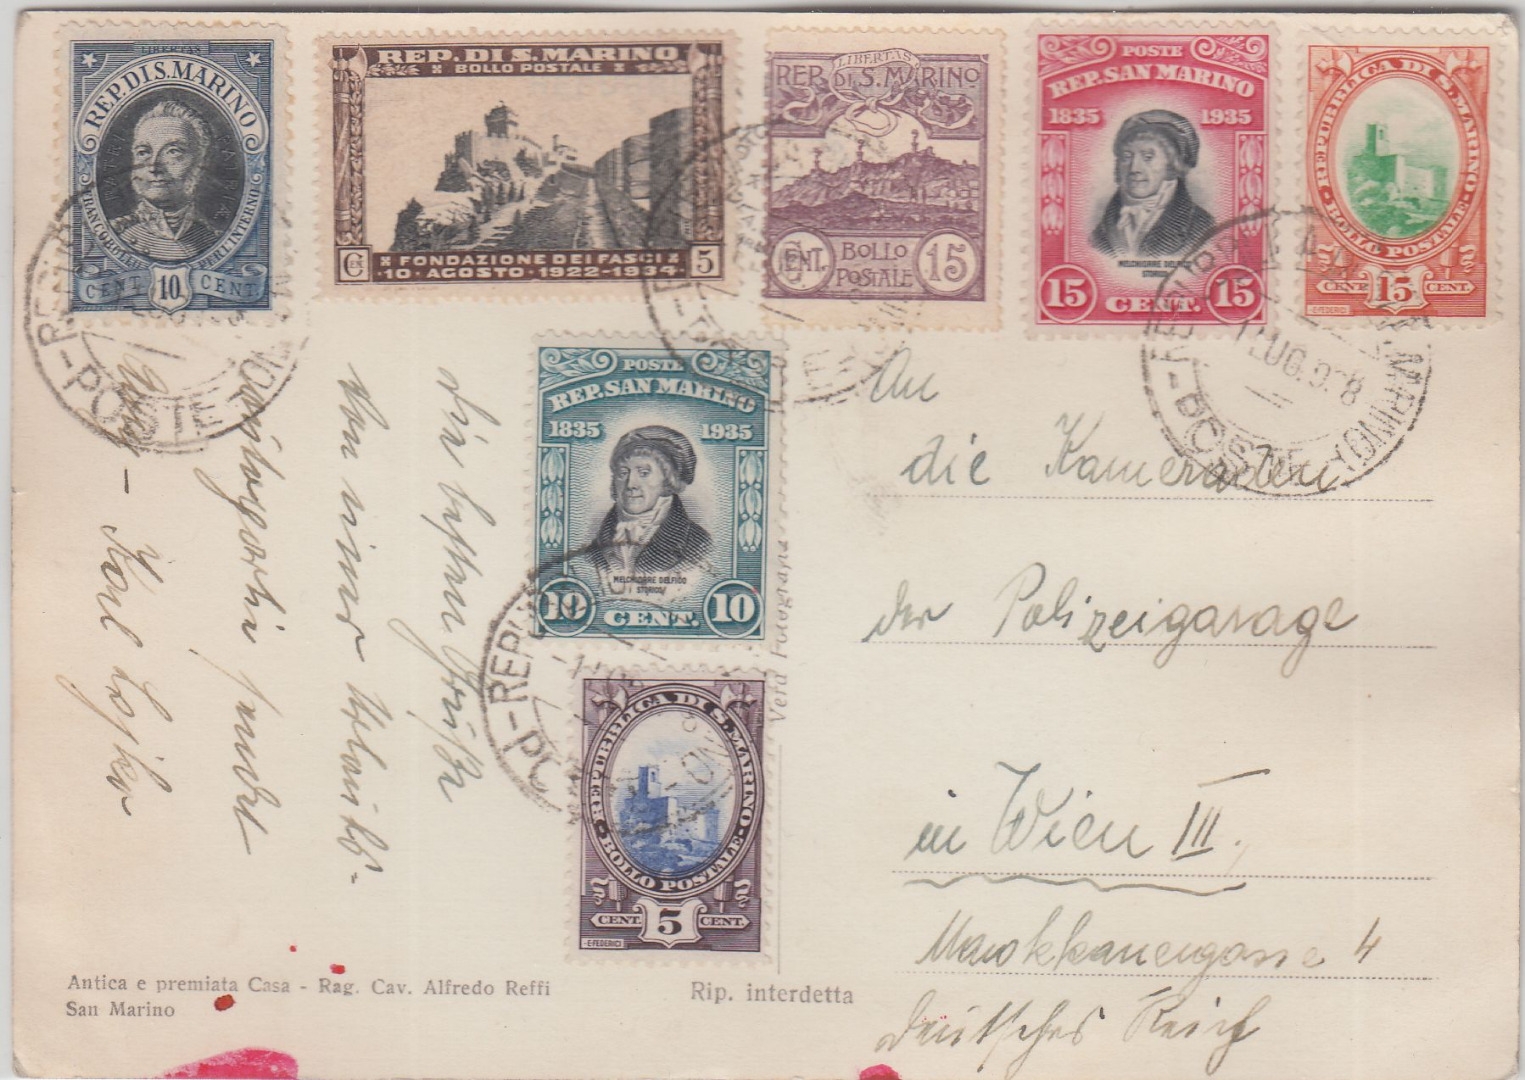 LIBERTAS
REP. DI S. MARINO
FRANCOBOLLO PER L'INTERNO
CENT. 10 CENT.
REP. DI S. MARINO
BOLLO POSTALE
FONDAZIONE DEI FASCI
10 - AGOSTO - 1922 - 1934
5
LIBERTAS
REP. DI S. MARINO
CENT. BOLLO POSTALE 15
POSTE
REP. SAN MARINO
1835 1935
MELCHIORRE DELFICO
STORICO
15 CENT. 15
REPUBBLICA DI S. MARINO
BOLLO POSTALE
CENT. 15 CENT.
E. FEDERICI
POSTE
REP. SAN MARINO
1835 1935
MELCHIORRE DELFICO
STORICO
10 CENT. 10
REPUBBLICA DI S. MARINO
BOLLO POSTALE
CENT. 5 CENT.
E. FEDERICI
die besten Grüße
von einer Urlaubs-
sendet
Karl
An
die Kameraden
der Polizeigarage
in Wien III.
Marokkanergasse 4
Deutsches Reich
Vera Fotografia
Antica e premiata Casa - Rag. Cav. Alfredo Reffi
San Marino
Rip. interdetta